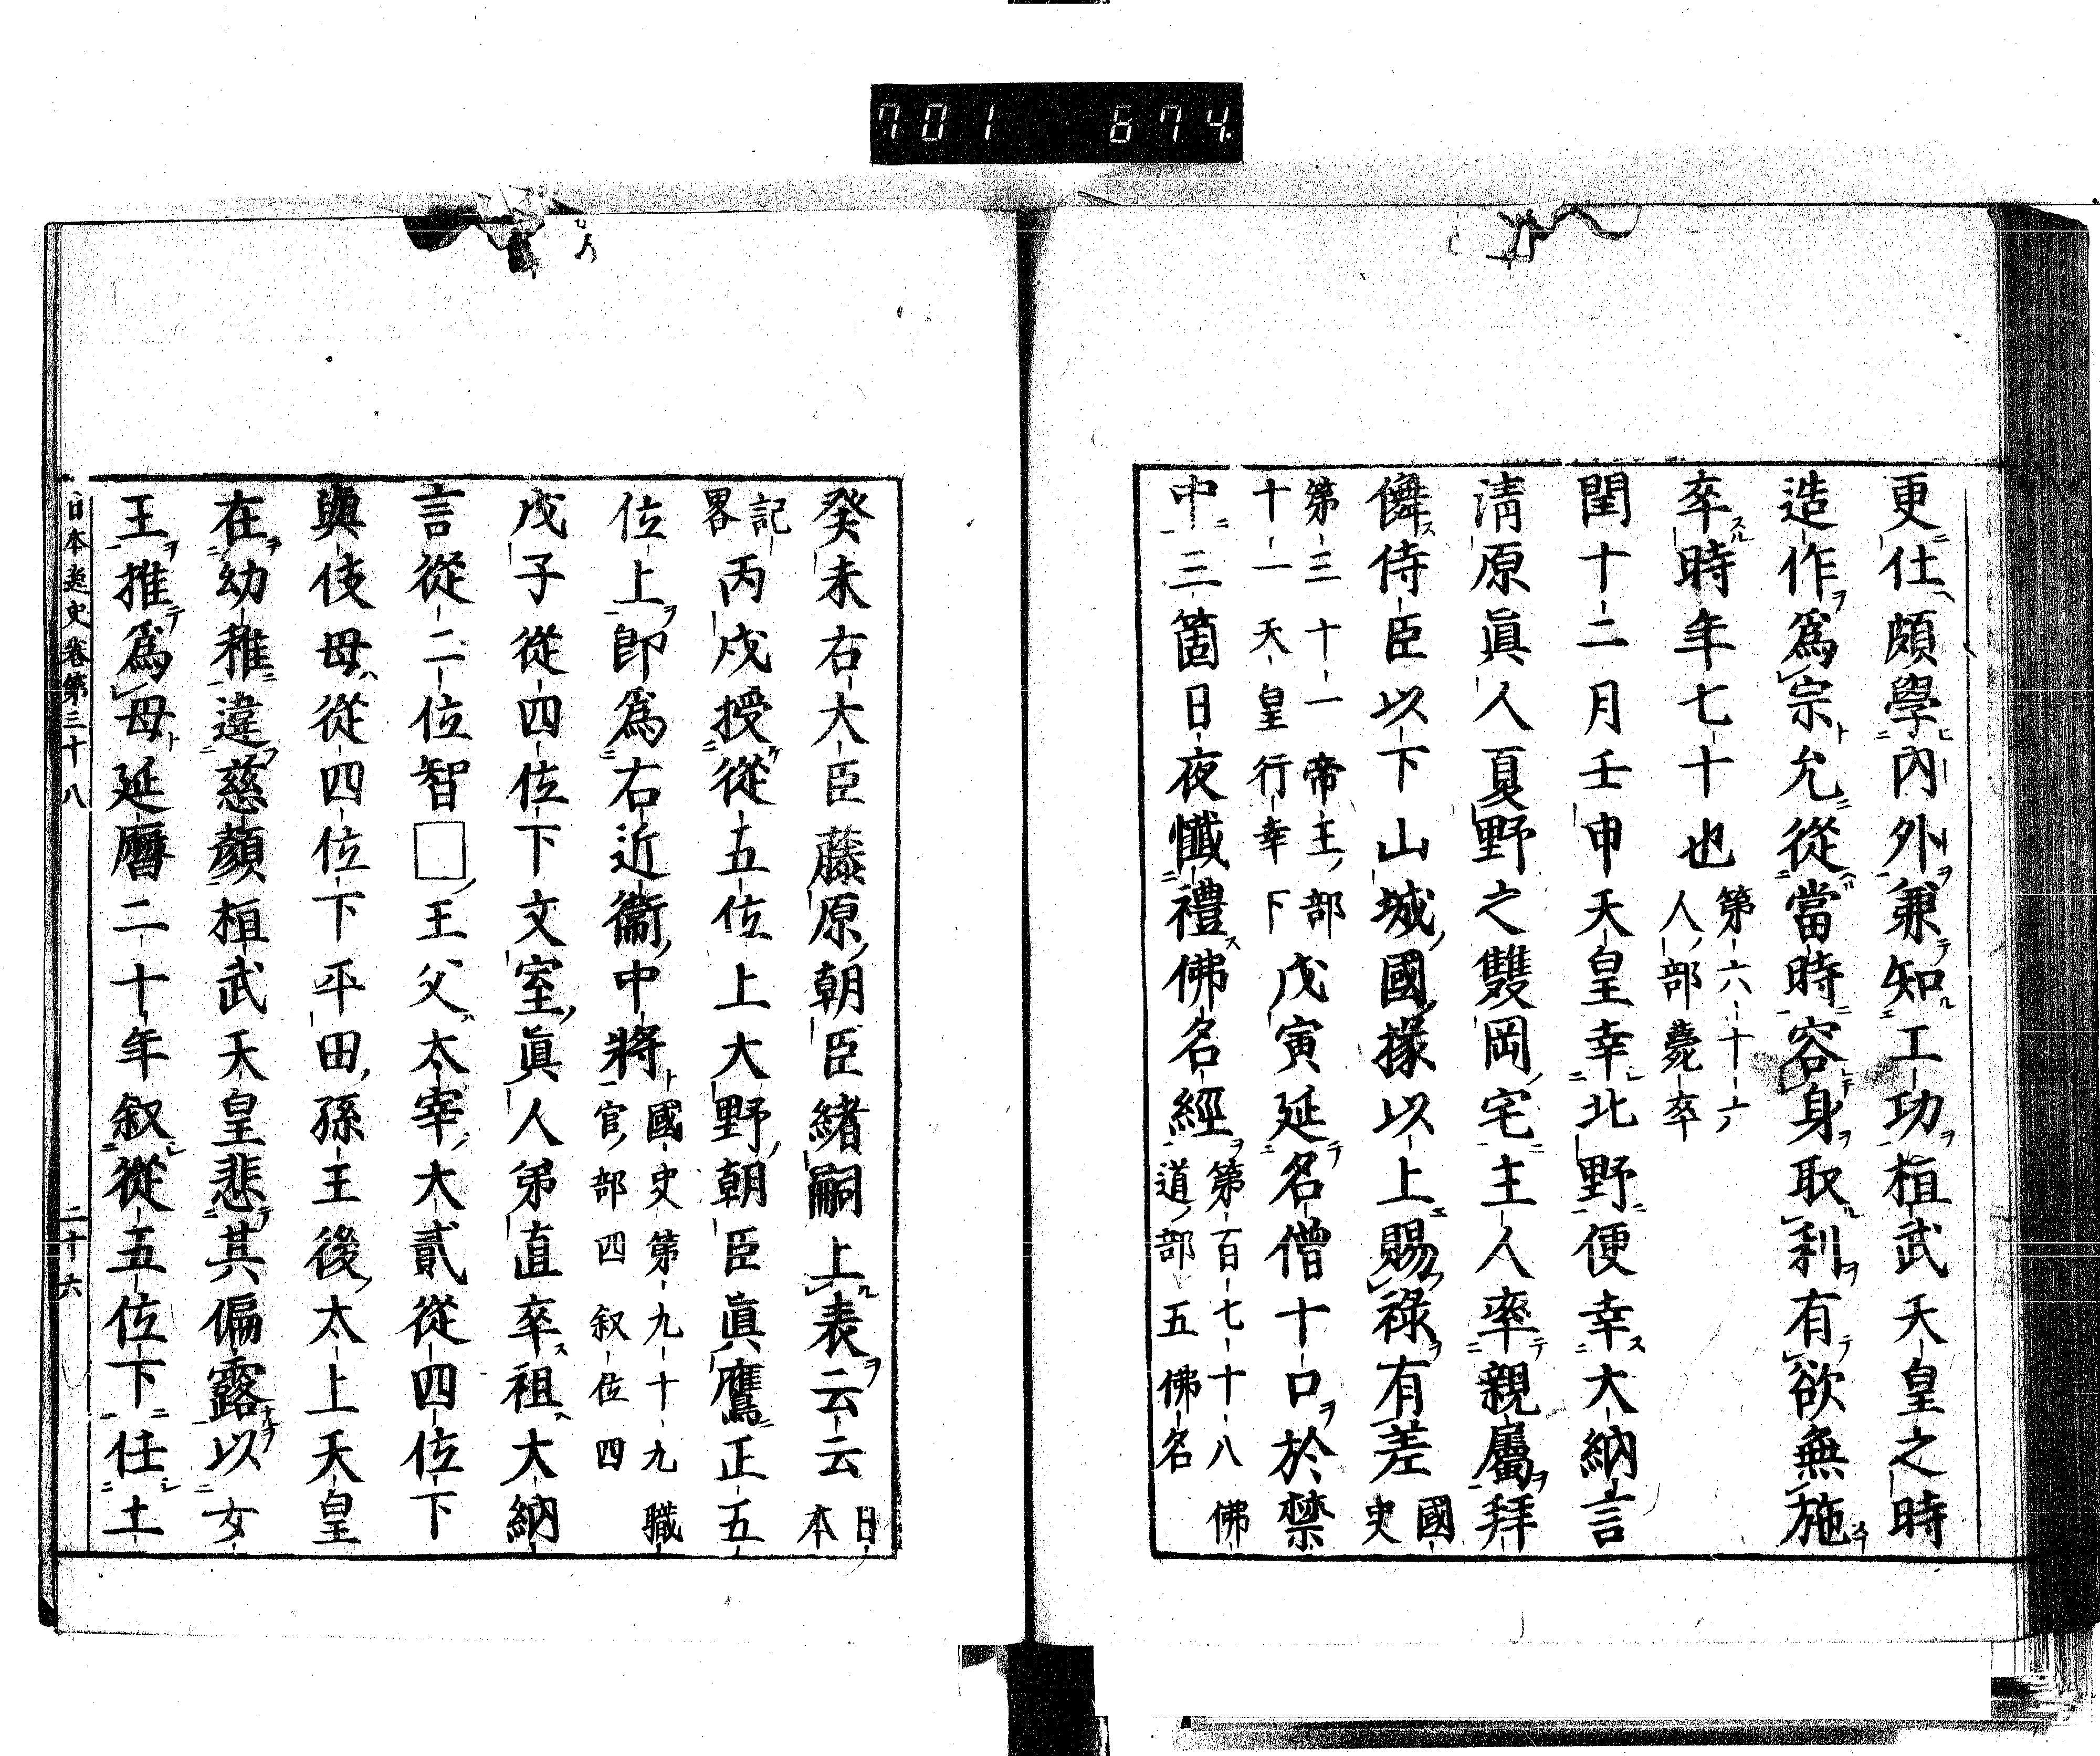 701 674
更仕頗學內外兼知工功桓武天皇之時
造作爲宗允從當時容身取利有欲無施
卒時年七十也第六十六人部薨卒
閏十二月壬申天皇幸北野便幸大納言
淸原眞人夏野之雙岡宅主人率親屬拜
儛侍臣以下山城國掾以上賜祿有差國史
第三十一帝王部十一天皇行幸下戊寅延名僧十口於禁
中三箇日夜懺禮佛名經第百七十八佛道部五佛名
癸未右大臣藤原朝臣緖嗣上表云云日本
記畧丙戌授從五位上大野朝臣眞鷹正五
位上卽爲右近衞中將國史第九十九職官部四叙位四
戊子從四位下文室眞人弟直卒祖大納
言從二位智□王父太宰大貳從四位下
與伎母從四位下平田孫王後太上天皇
在幼稚違慈顏桓武天皇悲其偏露以女
王推爲母延曆二十年叙從五位下任土
日本逸史卷第三十八 二十六